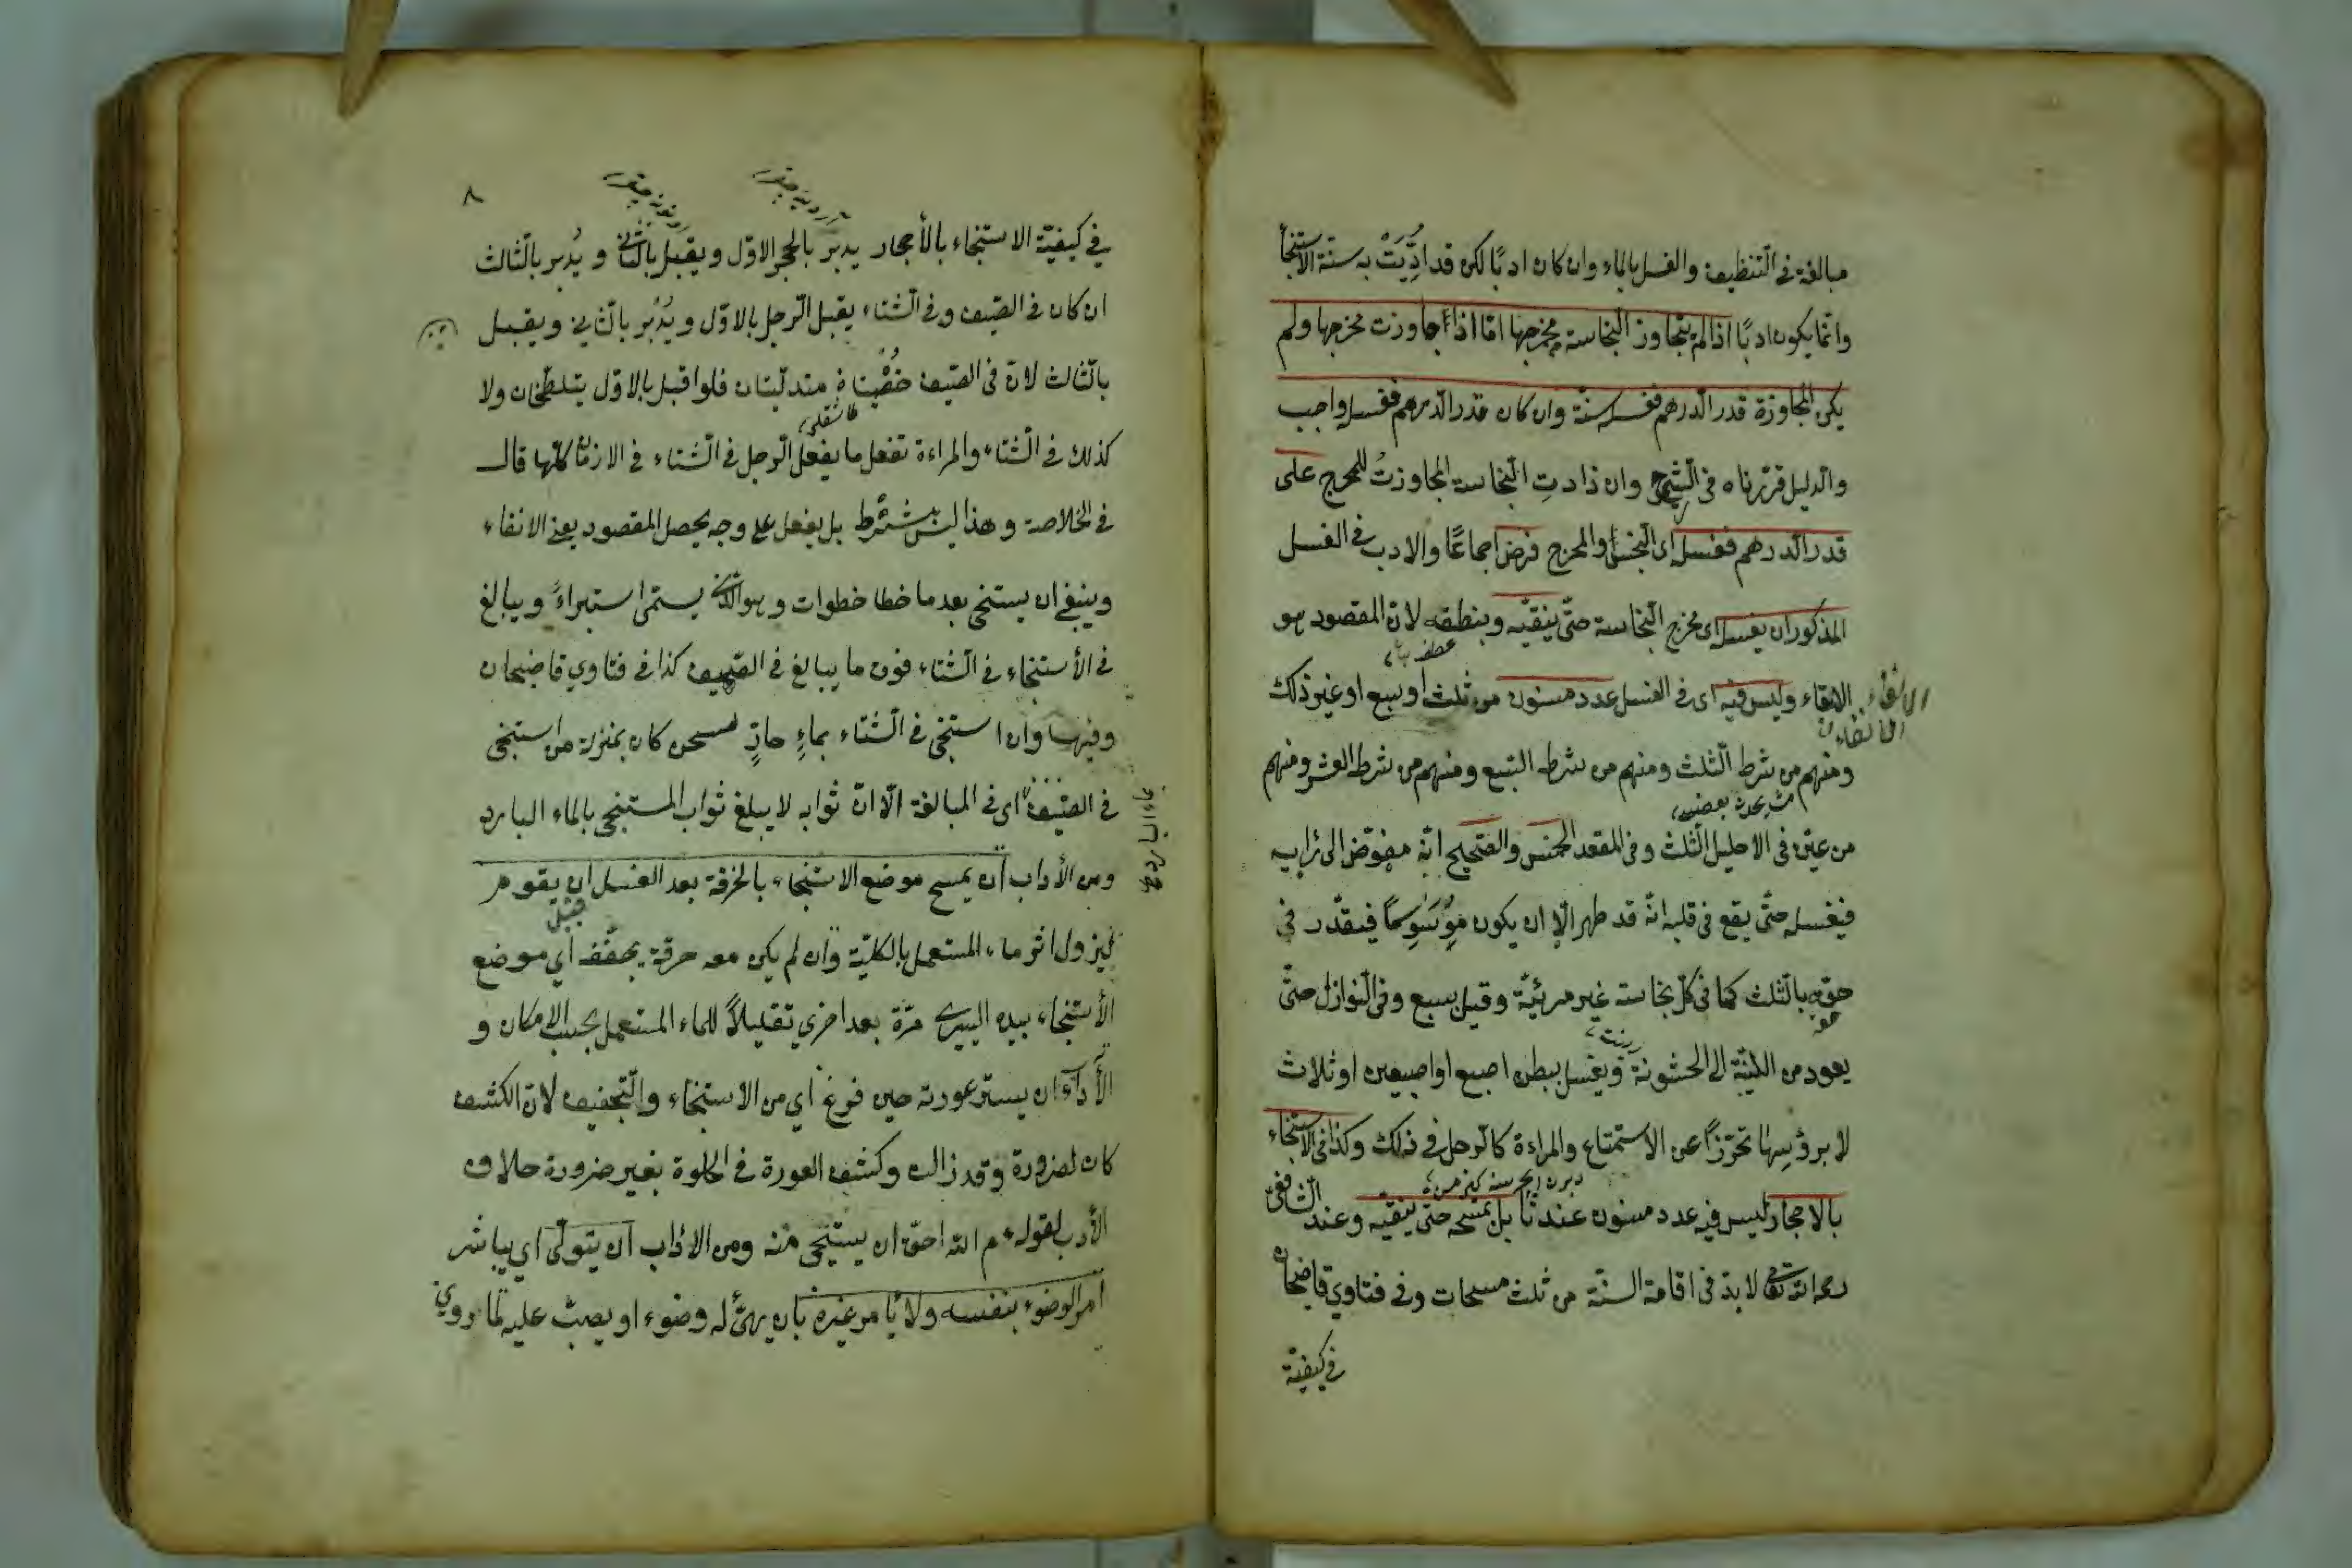 مبالغة في التنظيف والغسل بالماء وان كان ادبًا لكن قد ادِّيَتْ به سنة الاستنجا
وانما يكون ادبًا اذا لم يتجاوز النجاسة مخرجها امّا اذا جاوزت مخرجها ولم
يكن المجاوزة قدر الدرهم فغسله سنّة وان كان قدر الدرهم فغسله واجب
والدليل قرّرناه في الشرح وان زادتِ النجاسة المجاوزتُ للمخرج على
قدر الدرهم فغسله اى النجس والمخرج فرض اجماعًا والادب في الغسل
المذكور ان يغسل اى مخرج النجاسة حتّى ينقّيه وينظفه لان المقصود هو
الانقاء وليس فيه اى في الغسل عدد مسنون من ثلث او سبع او غير ذلك
الانقاء
ومنهم من شرط الثلث ومنهم من شرط السبع ومنهم من شرط العشر ومنهم
من عيّن في الاحليل الثلث وفي المقعد الخمس والصحيح انّه مفوّض الى رايه
فيغسله حتّى يقع في قلبه انّه قد طهر الّا ان يكون مُوَسْوِسًا فيقدّر في
حقه بالثلث كما في كلّ نجاسة غير مرئيّة وقيل بسبع وفي النوازل حتّى
يعود من اللينة الى الخشونة ويغسل ببطن اصبع او اصبعين او ثلاث
لا برؤسها تحرّزًا عن الاستمتاع والمراءة كالرجل في ذلك وكذا في الاستنجاء
بالاحجار ليس فيه عدد مسنون عندنا بل يمسحه حتّى ينقّيه وعند الشافعى
رحمه الله تعالى لا بدّ في اقامة السنّة من ثلث مسحات وفي فتاوي قاضيخان
في كيفيّة
٨
في كيفيّة الاستنجاء بالأحجار يدبر بالحجر الاوّل ويقبل بالثانى ويُدبر بالثالث
ان كان في الصّيف وفي الشتاء يقبل الرجل بالاوّل ويُدْبر بالثاني ويقبل
بالثالث لانّ في الصّيف خُصْيتاه متدلّيتان فلو اقبل بالاوّل يتلطّخان ولا
كذلك في الشتاء والمراءة تفعل ما يفعل الرجل في الشتاء في الازمان كلّها قال
في الخلاصة وهذا ليس بشرط بل يفعل على وجه يحصل المقصود يعنى الانقاء
وينبغى ان يستنجى بعد ما خطا خطوات وهو الذى يسمّى استبراءً ويبالغ
في الأستنجاء في الشتاء فوق ما يبالغ في الصّيف كذا في فتاوي قاضيخان
وفيها وان استنجى في الشتاء بماءٍ حارٍّ مسخن كان بمنزلة من استنجى
في الصّيف اى في المبالغة الّا انّ ثوابه لا يبلغ ثواب المستنجى بالماء البارد
ومن الأداب ان يمسح موضع الاستنجاء بالخرقة بعد الغسل ان يقوم
قبل
ليزول اثر ماء المستعمل بالكليّة وان لم يكن معه خرقة يجفّفه أي موضع
الأستنجاء بيده اليسرى مرّة بعد اخرى تقليلًا للماء المستعمل بحسب الامكان و
الأداب ان يستر عورته حين فرغ أي من الاستنجاء والتّجفيف لانّ الكشف
كان لضرورة وقد زالت وكشف العورة في الخلوة بغير ضرورة خلاف
الأدب لقوله ءم الله احقّ ان يستحيى منه ومن الاداب ان يتولّى اي يباشر
امر الوضوء بنفسه ولا يأمر غيره بان يهيّئ له وضوء او يصبّ عليه لما روي